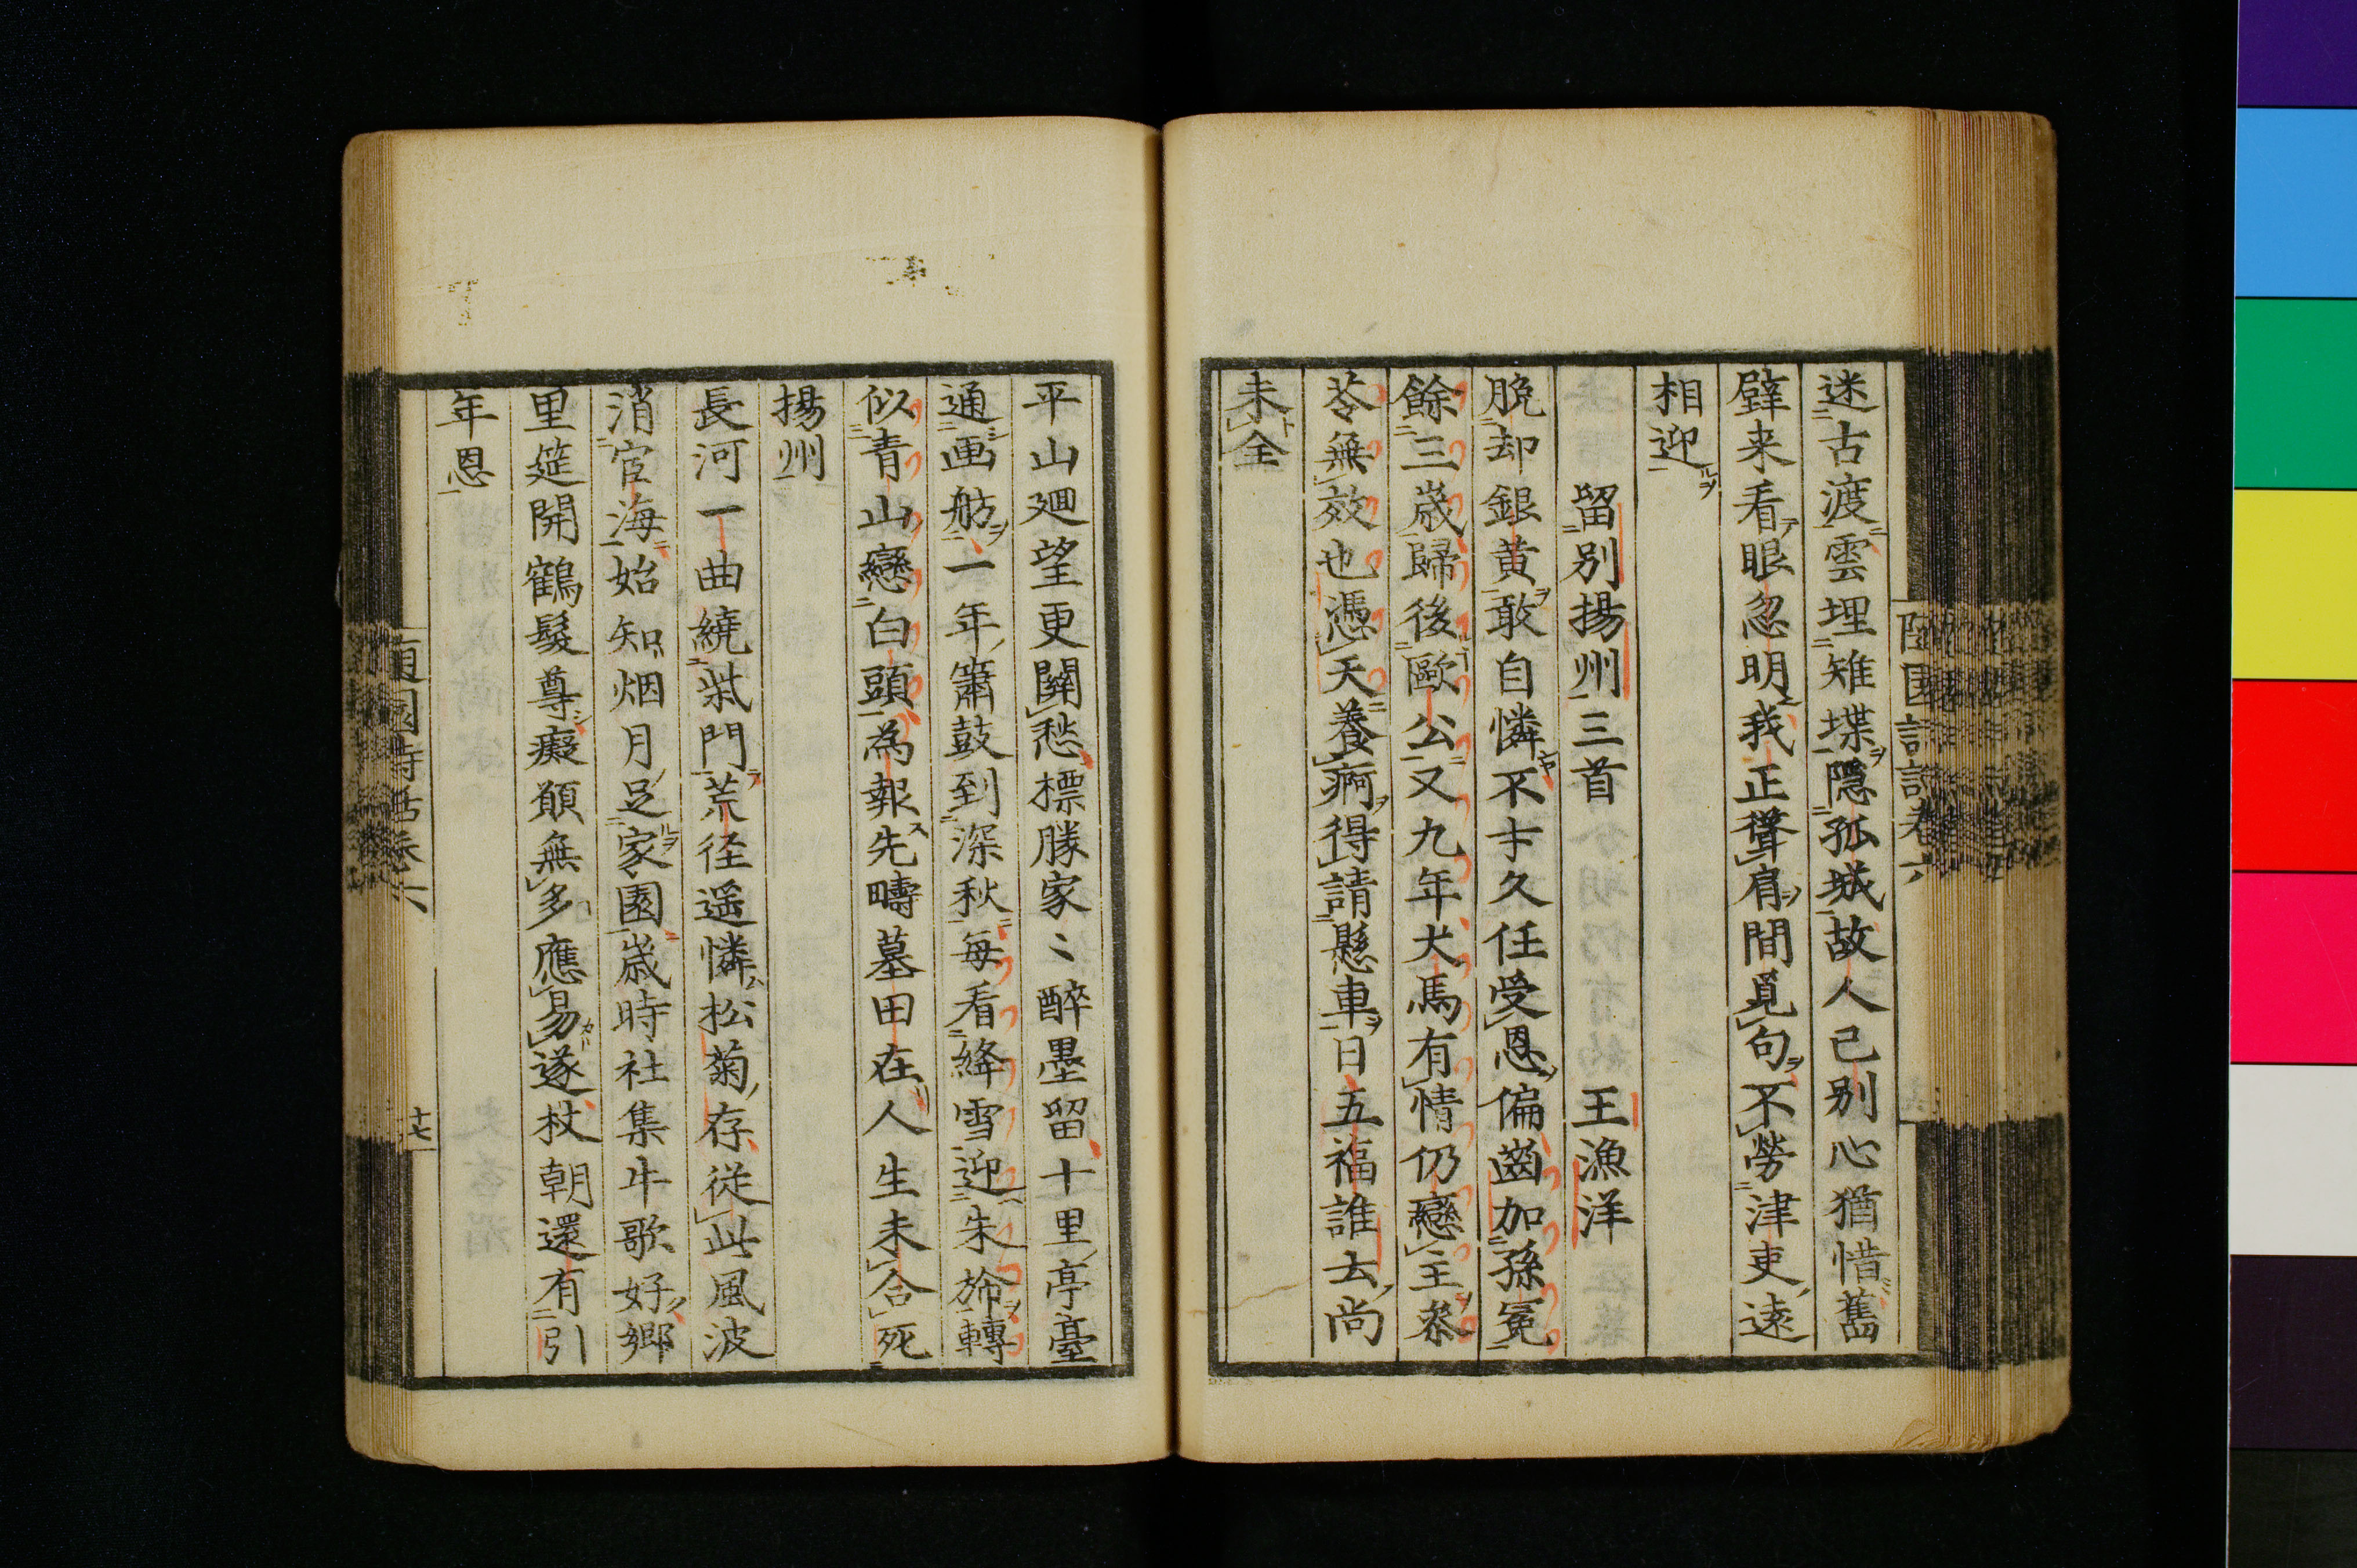 迷古渡雲埋雉堞隠孤城故人已別心猶惜舊
壁来看眼忽明我正聳肩間覓句不勞津吏遠
相迎
留別揚州三首 王漁洋
脫却銀黄敢自憐不才久任受恩偏齒加孫冕
餘三歳歸後歐公又九年犬馬有情仍戀主參
苓無效也憑天養痾得請懸車日五福誰去尚
未全
平山廻望更關愁標勝家〻醉墨留十里亭臺
通画舫一年簫鼓到深秋每看絳雪迎朱旆轉
似青山戀白頭為報先疇墓田在人生未合死
揚州
長河一曲繞柴門荒径遥憐松菊存從此風波
消宦海始知烟月足家園歳時社集牛歌好郷
里筵開鶴髮尊癡願無多應易遂杖朝還有引
年恩
隨園詩話卷六
十七